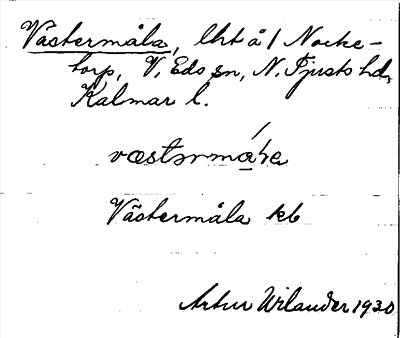 Västermåla, lht å/ Nocke-
torp, V. Eds sn, N. Tjusts hd,
Kalmar l.
västərmå̀ɫa
Västermåla kb
Artur Wilander 1930